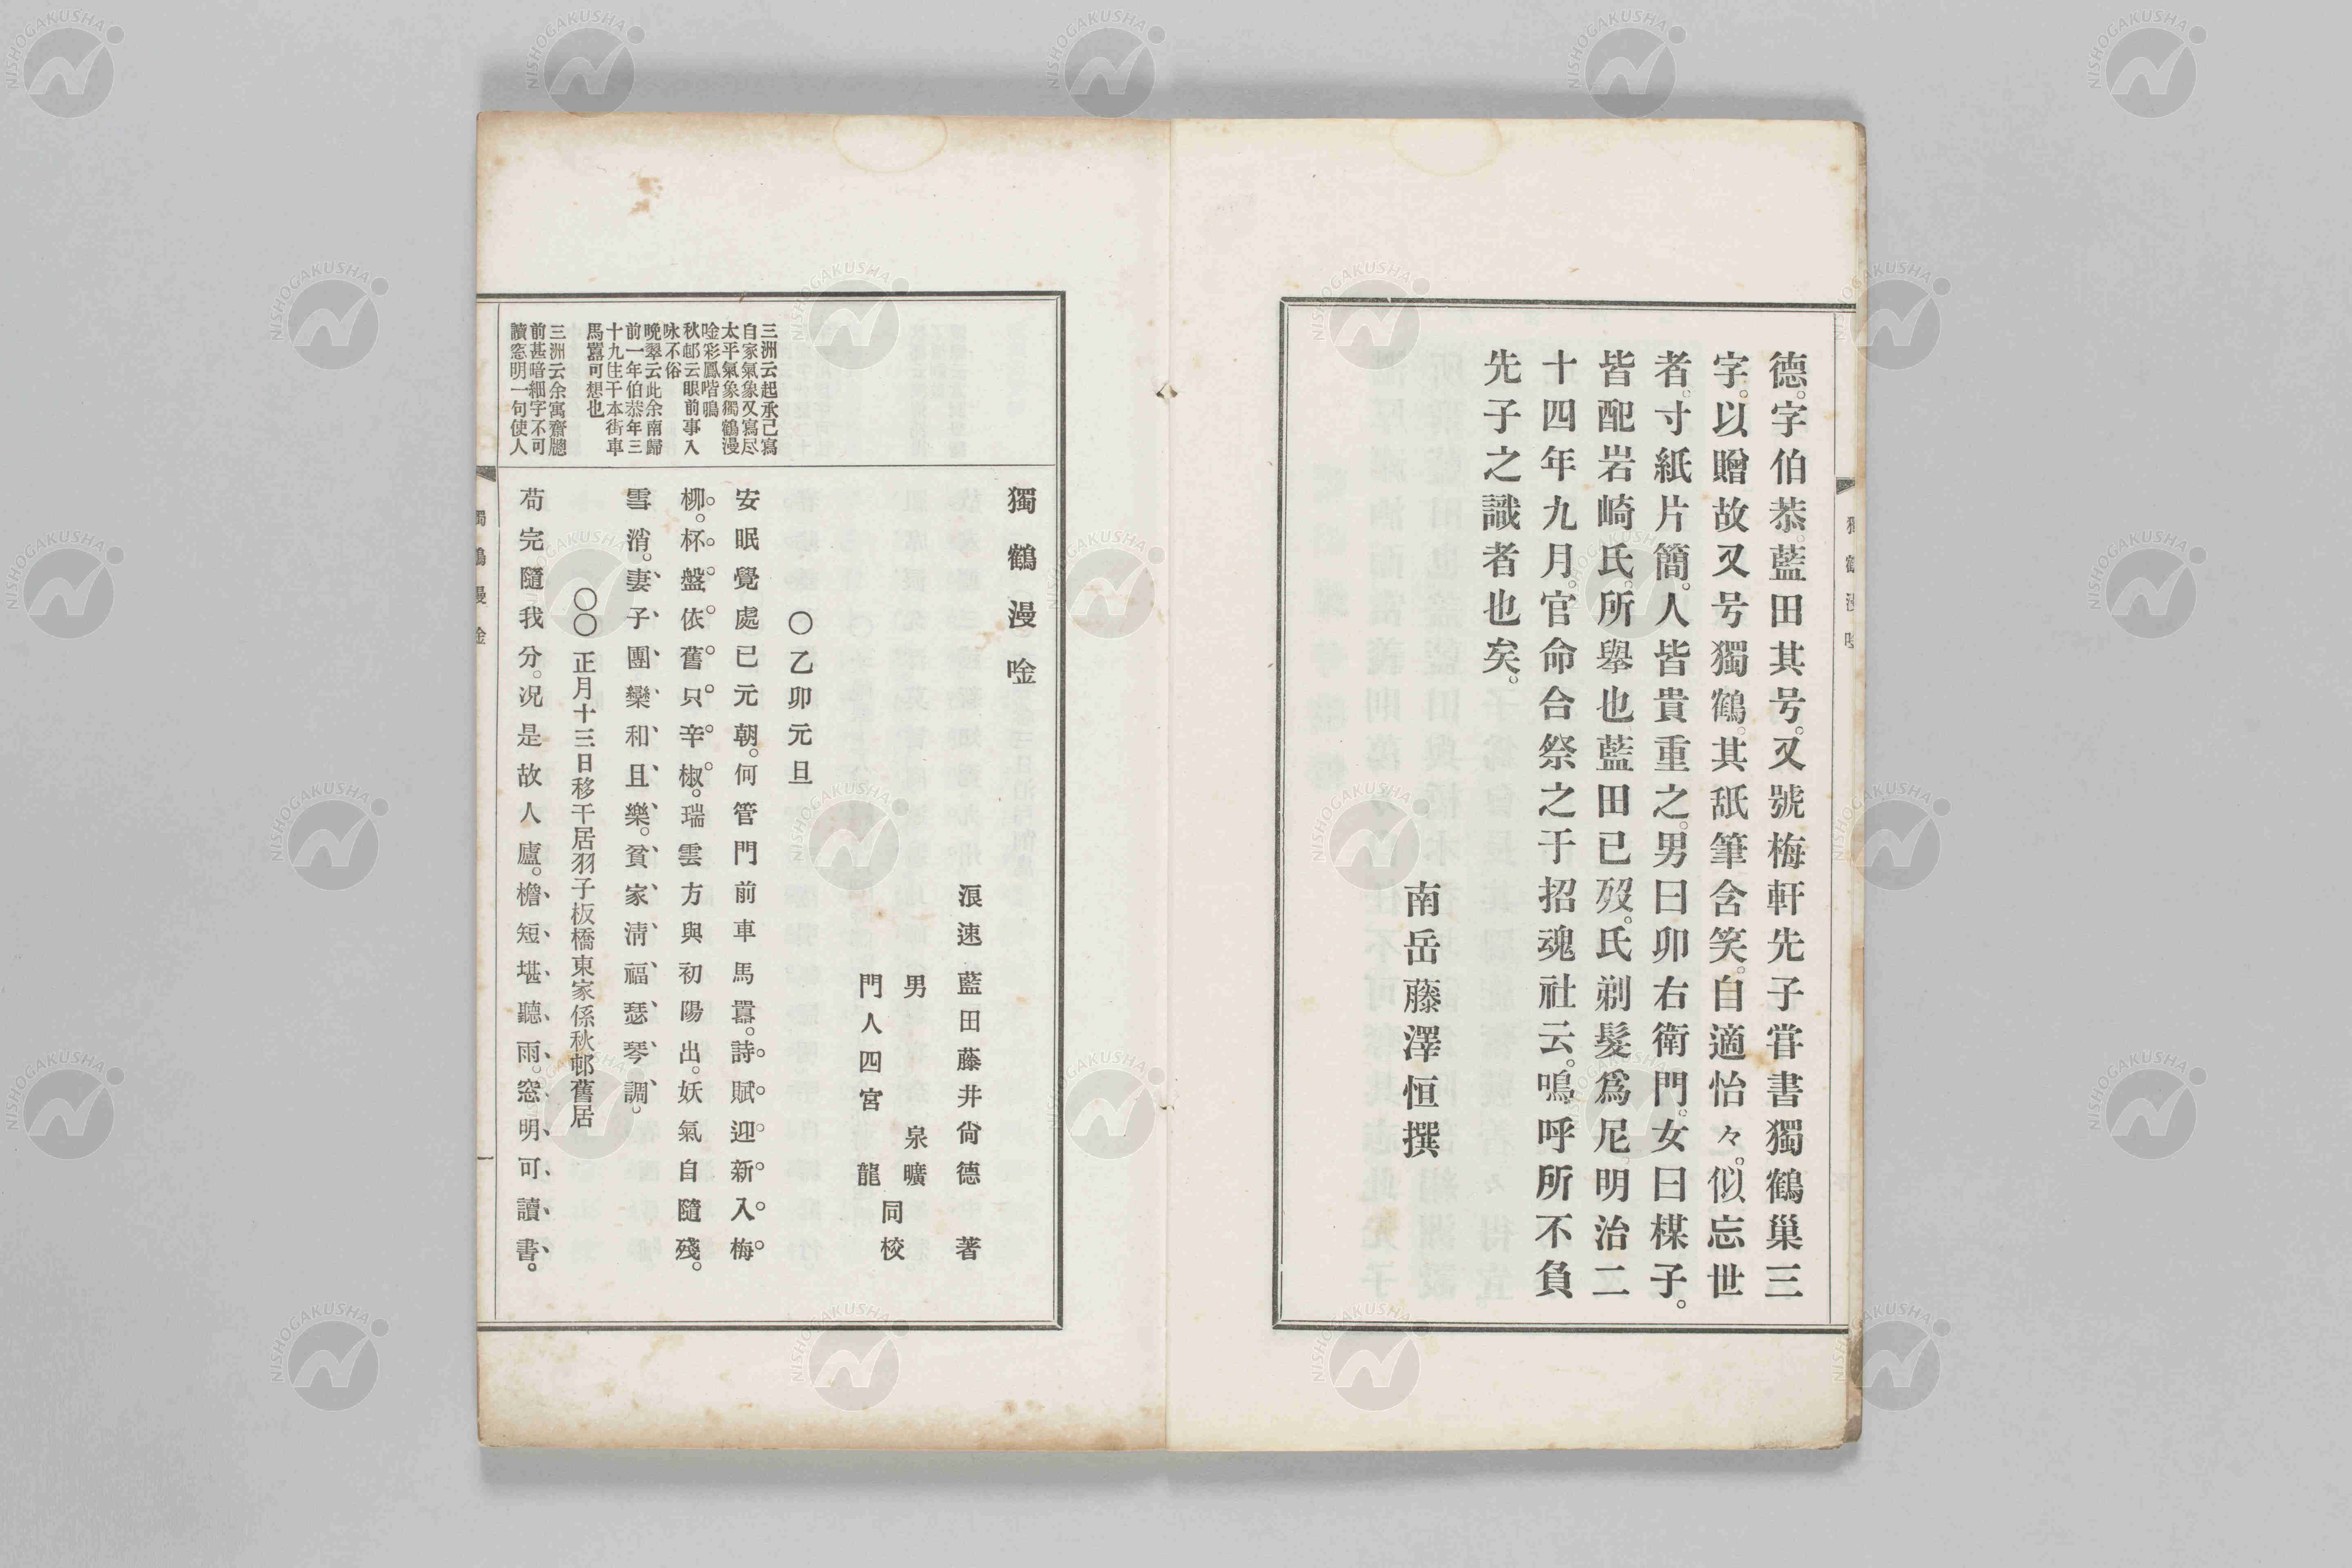 德。字伯恭。藍田其号。又號梅軒先子嘗書獨鶴巢三
字。以贈故又号獨鶴。其舐筆含笑。自適怡々。似忘世
者。寸紙片簡。人皆貴重之。男曰卯右衛門。女曰楳子。
皆配岩崎氏。所擧也藍田已歿。氏剃髮爲尼。明治二
十四年九月。官命合祭之于招魂社云。嗚呼所不負
先子之識者也矣。
南岳藤澤恒撰
獨鶴漫唫
浪速 藍田藤井尙德 著
男 泉曠
門人四宮 龍
同校
〇乙卯元旦
安眠覺處已元朝。何管門前車馬囂。詩賦迎新入梅
柳。杯盤依舊只辛椒。瑞雲方與初陽出。妖氣自隨殘
雪消。妻子團欒和且樂。貧家淸福瑟琴調。
〇〇正月十三日移干居羽子板橋東家係秋邨舊居
苟完隨我分。况是故人廬。檐短堪聽雨。窓明可讀書。
三洲云起承己寫
自家氣象又寫尽
太平氣象獨鶴漫
唫彩鳳喈鳴
秋邨云眼前事入
咏不俗
晩翠云此余南歸
前一年伯恭年三
十九住干本街車
馬囂可想也
三洲云余寓齋牕
前甚暗細字不可
讀窓明一句使人
獨鶴漫唫
一
NISHOGAKUSHA